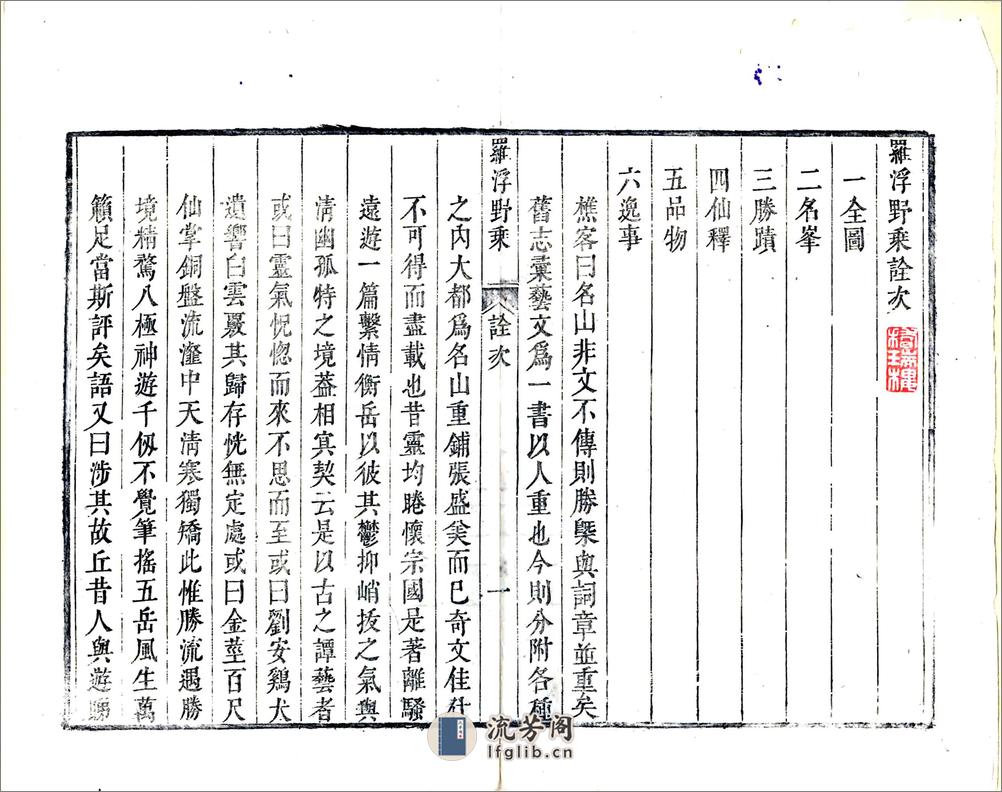 羅浮野乘詮次
一全圖
二名峯
三勝蹟
四仙釋
五品物
六逸事
樵客曰名山非文不傳則勝槩與詞章並重矣
舊志彙藝文爲一書以人重也今則分附各種
羅浮野乘
詮次
一
之內大都爲名山重鋪張盛美而已奇文佳什
不可得而盡載也昔靈均睠懷宗國是著離騷
遠遊一篇繫情衡岳以彼其鬱抑峭拔之氣與
淸幽孤特之境葢相㝠契云是以古之譚藝者
或曰靈氣怳惚而來不思而至或曰劉安鷄犬
遺響白雲覈其歸存恍無定處或曰金莖百尺
仙掌銅盤流瀣中天淸寒獨矯此惟勝流遇勝
境精騖八極神遊千仭不覺筆搖五岳風生萬
籟足當斯評矣語又曰涉其故丘昔人與遊睇
流芳阁
lfglib.cn